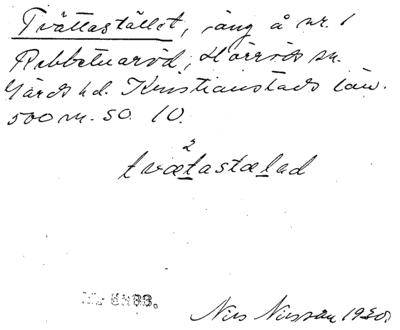 Tvättastället, äng å nr. 1
Ribbetuaröd, Hörröds sn.
Gärds hd. Kristianstads län.
500 m. SO. 10.
2
tvætastælad
Nils Nilsson 1930.